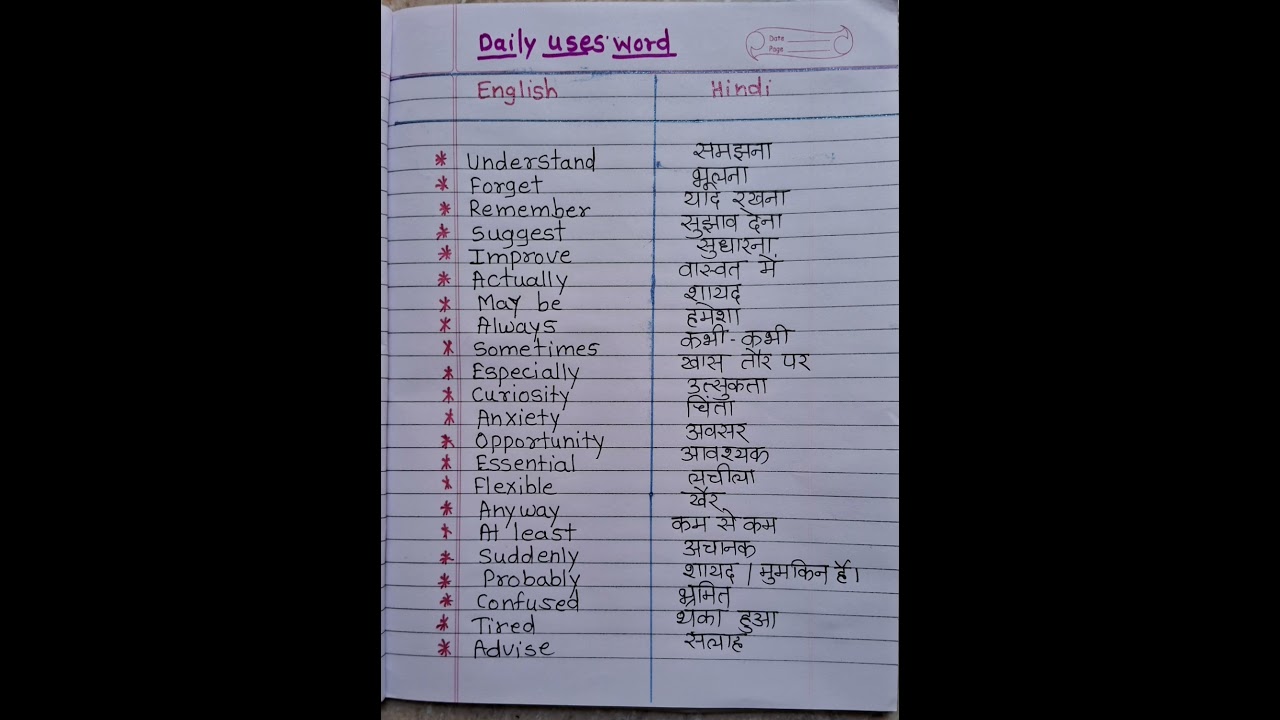 Daily uses word
Date
Page
English Hindi
* Understand समझना
* Forget भूलना
* Remember याद रखना
* Suggest सुझाव देना
* Improve सुधारना
* Actually वास्वत में
* May be शायद
* Always हमेशा
* Sometimes कभी-कभी
* Especially खास तौर पर
* Curiosity उत्सुकता
* Anxiety चिंता
* Opportunity अवसर
* Essential आवश्यक
* Flexible लचीला
* Anyway खैर
* At least कम से कम
* Suddenly अचानक
* Probably शायद / मुमकिन हैं।
* Confused भ्रमित
* Tired थका हुआ
* Advise सलाह